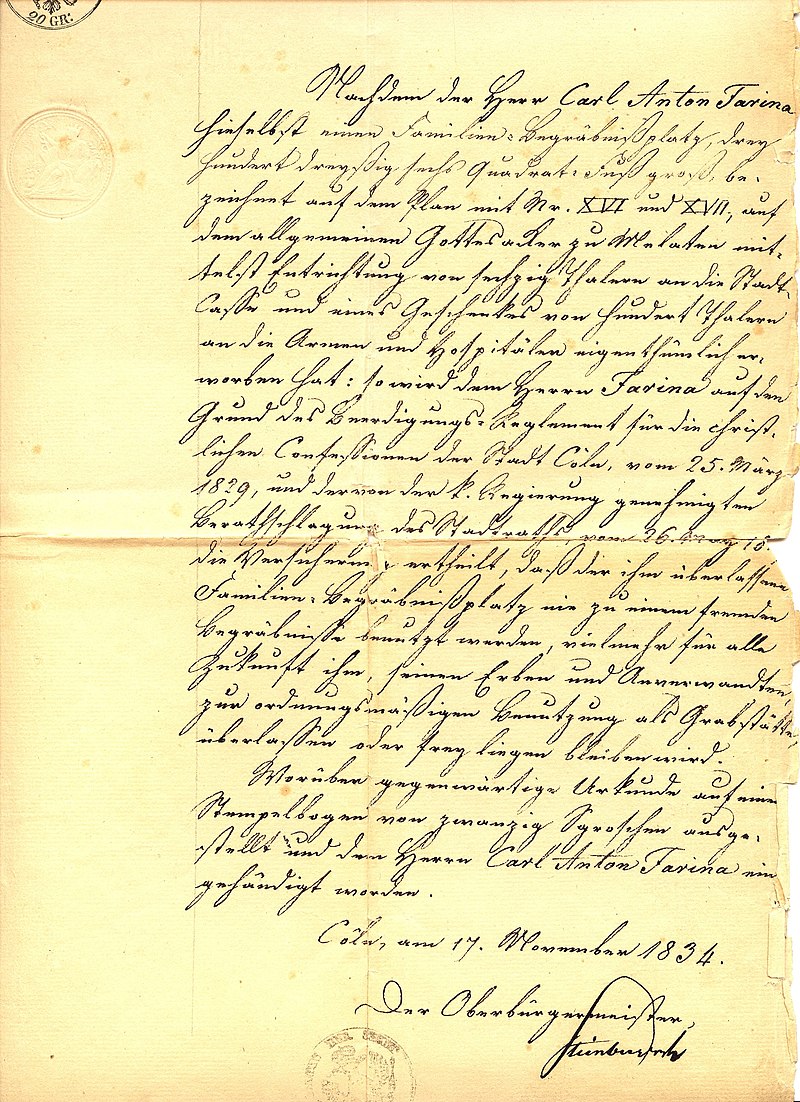 20 GR:
Nachdem der Herr Carl Anton Farina
hieselbst einen Familien-Begräbnißplatz, drey
hundert dreyßig sechs Quadrat-Fuß groß, be-
zeichnet auf dem Plan mit Nr. XVI und XVII, auf
dem allgemeinen Gottesacker zu Melaten mit-
telst Entrichtung von sechzig Thalern an die Stadt-
Casse und eines Geschenkes von hundert Thalern
an die Armen und Hospitäler eigenthümlich er-
worben hat: so wird dem Herrn Farina auf den
Grund des Beerdigungs-Reglement für die christ-
lichen Confessionen der Stadt Cöln, vom 25. März
1829, und der von der k. Regierung genehmigten
Berathschlagung des Stadtraths, vom 26. May
die Versicherung ertheilt, daß der ihm überlassene
Familien-Begräbnißplatz nie zu einem fremden
Begräbnisse benutzt werden, vielmehr für alle
Zukunft ihm, seinen Erben und Anverwandten,
zur ordnungsmäßigen Benutzung als Grabstätte,
überlassen oder frey liegen bleiben wird.
Worüber gegenwärtige Urkunde auf einen
Stempelbogen von zwanzig Sgroschen ausge-
stellt und den Herrn Carl Anton Farina ein
gehändigt worden.
Cöln, am 17. November 1834.
Der Oberbürgermeister,
Steinberger
DER STADT